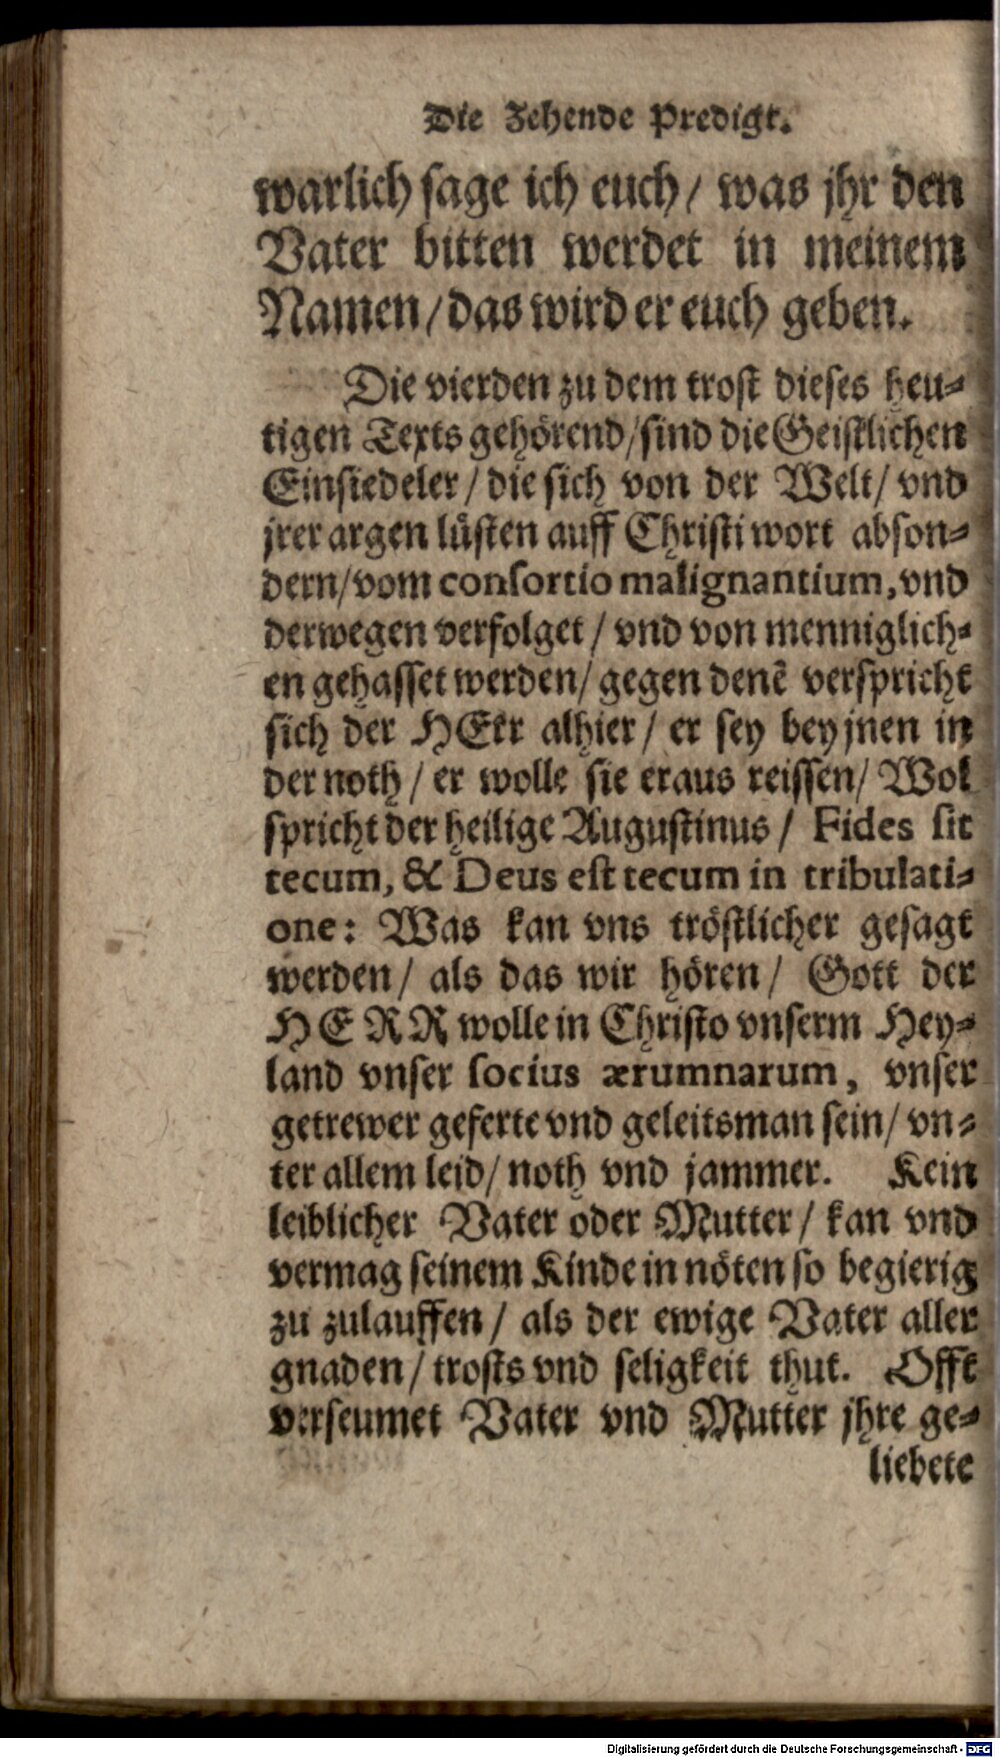 Die Zehende Predigt.
warlich sage ich euch/ was jhr den
Vater bitten werdet in meinem
Namen/das wird er euch geben.
Die vierden zu dem trost dieses heu-
tigen Texts gehörend/sind die Geistlichen
Einsiedeler/ die sich von der Welt/ vnd
jrer argen lüsten auff Christi wort abson-
dern/vom consortio malignantium, vnd
derwegen verfolget/ vnd von menniglich-
en gehasset werden/ gegen denē verspricht
sich der HErr alhier/ er sey bey jnen in
der noth/ er wolle sie eraus reissen/ Wol
spricht der heilige Augustinus/ Fides sit
tecum, & Deus est tecum in tribulati-
one: Was kan vns tröstlicher gesagt
werden/ als das wir hören/ Gott der
HERR wolle in Christo vnserm Hey-
land vnser socius ærumnarum, vnser
getrewer geferte vnd geleitsman sein/ vn-
ter allem leid/ noth vnd jammer. Kein
leiblicher Vater oder Mutter/ kan vnd
vermag seinem Kinde in nöten so begierig
zu zulauffen/ als der ewige Vater aller
gnaden/ trosts vnd seligkeit thut. Offt
verseumet Vater vnd Mutter jhre ge-
liebete
Digitalisierung gefördert durch die Deutsche Forschungsgemeinschaft - DFG